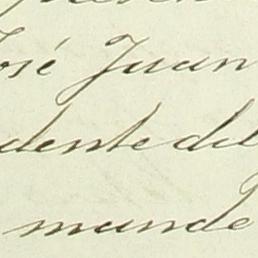 José Juan
dente del
munde